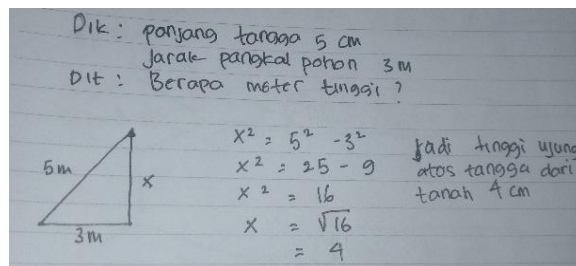 Dik : panjang tangga 5 cm
Jarak pangkal pohon 3 m
Dit : Berapa meter tinggi ?
5m
x
3m
x² = 5² - 3²
x² = 25 - 9
x² = 16
x = √16
= 4
Jadi tinggi ujung
atas tangga dari
tanah 4 cm